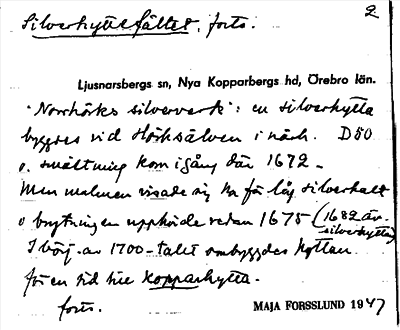 Silverhyttefältet, forts. 2
Ljusnarsbergs sn, Nya Kopparbergs hd, Örebro län.
"Norrhörks silververk": en silverhytta
byggdes vid Hörksälven i närh. D50
o. smältning kom igång där 1672 -
Men malmen visade sig ha för låg silverhalt
o brytningen upphörde redan 1675 (1682 är
silverhyttan)
I börj. av 1700-talet ombyggdes hyttan
för en tid till kopparhytta.
forts.
MAJA FORSSLUND 1947